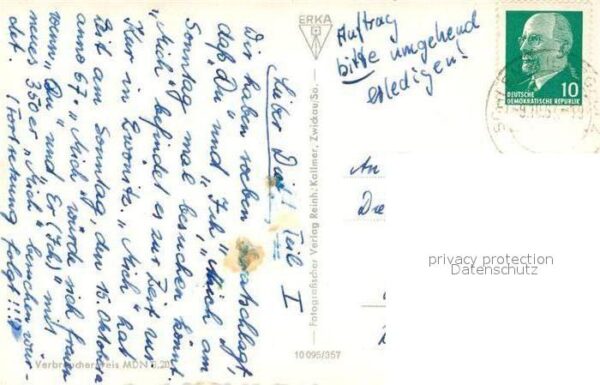 Lieber Dein! Teil I
Wir haben soeben ratschlagt,
daß „Du" und „Ich", „Mich" am
Sonntag mal besuchen könnt.
„Mich" befindet es zur Zeit nur
hier in Zwönitz. „Mich" hat
Zeit am Sonntag, den 15. Oktober
anno 67. „Mich" würde sich freuen
wenn „Du" und Er (Ich) mit
neues 350er „Mich" besuchen wür-
det. (Fortsetzung folgt!!!)
Verbraucherpreis MDN 0,20
ERKA
Fotografischer Verlag Reinh. Kallmer, Zwickau/Sa.
10 095/357
Auftrag
bitte umgehend
erledigen!
10
DEUTSCHE
DEMOKRATISCHE REPUBLIK
An
Die
privacy protection
Datenschutz